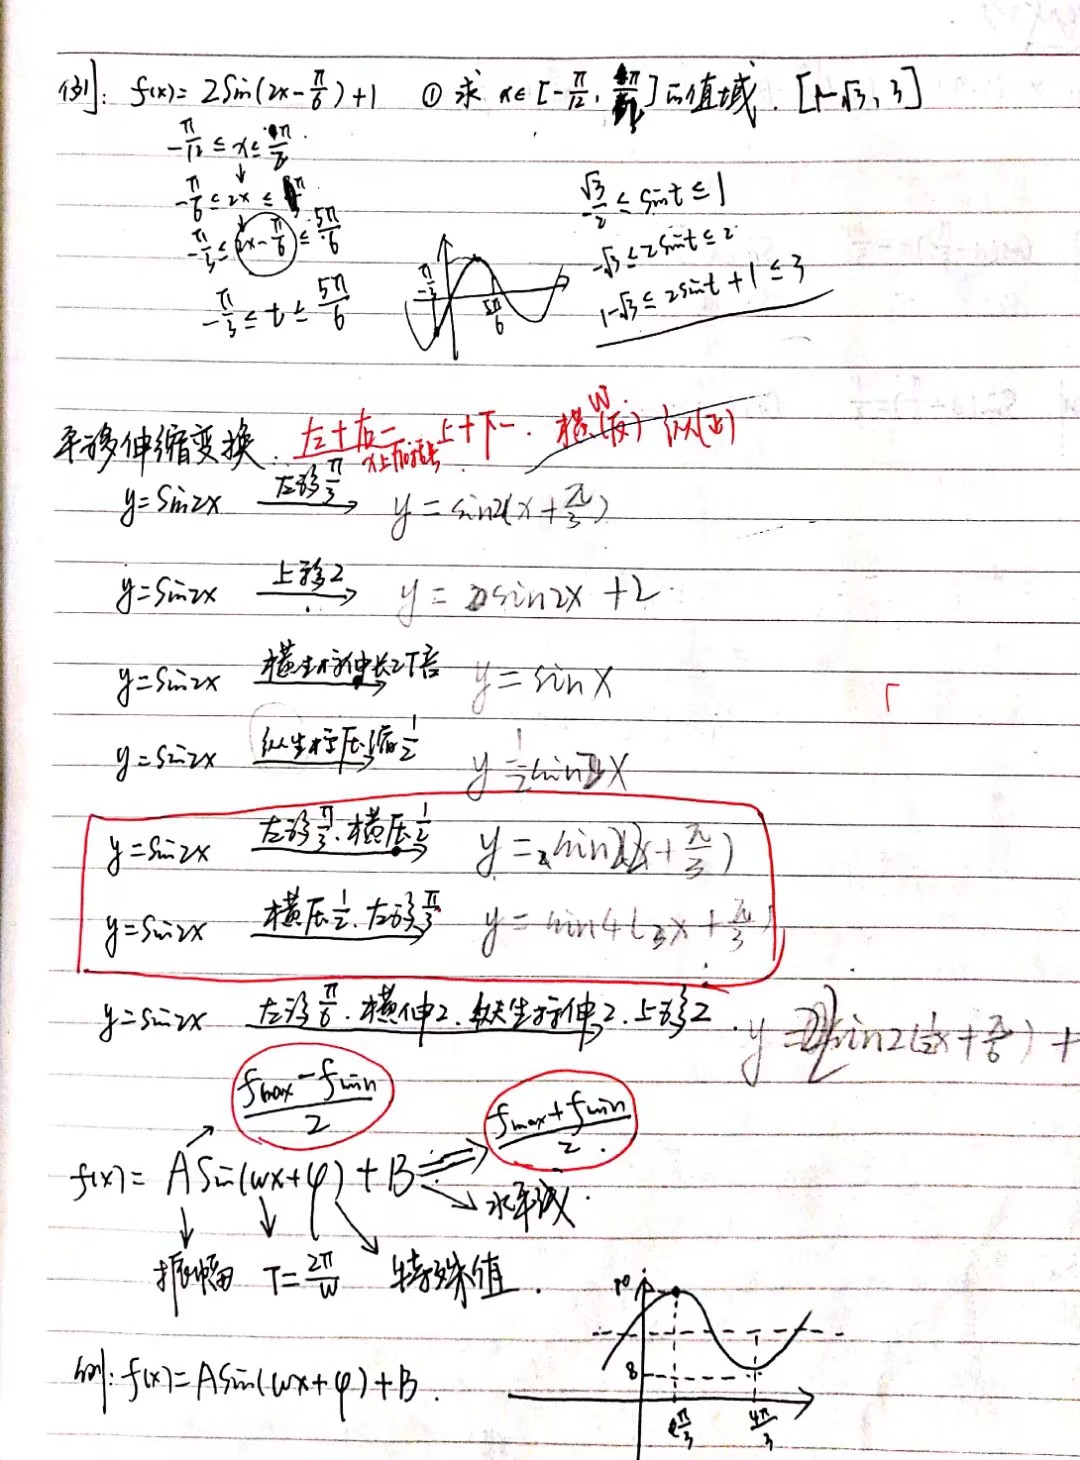 例: f(x)= 2Sin(2x-π/6)+1 ① 求 x∈[-π/12, π/2]的值域. [1-√3, 3]
-π/12 ≤ x ≤ π/2
-π/6 ≤ 2x ≤ π
-π/3 ≤ 2x-π/6 ≤ 5π/6
-π/3 ≤ t ≤ 5π/6
-π/3
5π/6
-√3/2 ≤ Sint ≤ 1
-√3 ≤ 2Sint ≤ 2
1-√3 ≤ 2sint + 1 ≤ 3
平移伸缩变换. 左+右- 上+下-. 横(反) 纵(正)
W
y=Sin2x 左移π/3 y=sin2(x+π/3)
y=Sin2x 上移2 y= sin2x +2
y=Sin2x 横坐标伸长2倍 y=sinx
y=Sin2x 纵坐标压缩1/2 y=1/2sin2x
y=Sin2x 左移π/3. 横压1/2 y=sin2(2x+π/3)
y=Sin2x 横压1/2. 左移π/3 y=sin4(x+π/3)
y=Sin2x 左移π/6. 横伸2. 纵坐标伸2. 上移2. y=2sin2(1/2x+π/6)+
fmax-fmin/2
fmax+fmin/2
f(x)= ASin(wx+φ)+B
水平线
振幅 T=2π/w 特殊值.
例: f(x)=ASin(wx+φ)+B.
10
8
π/3
4π/3